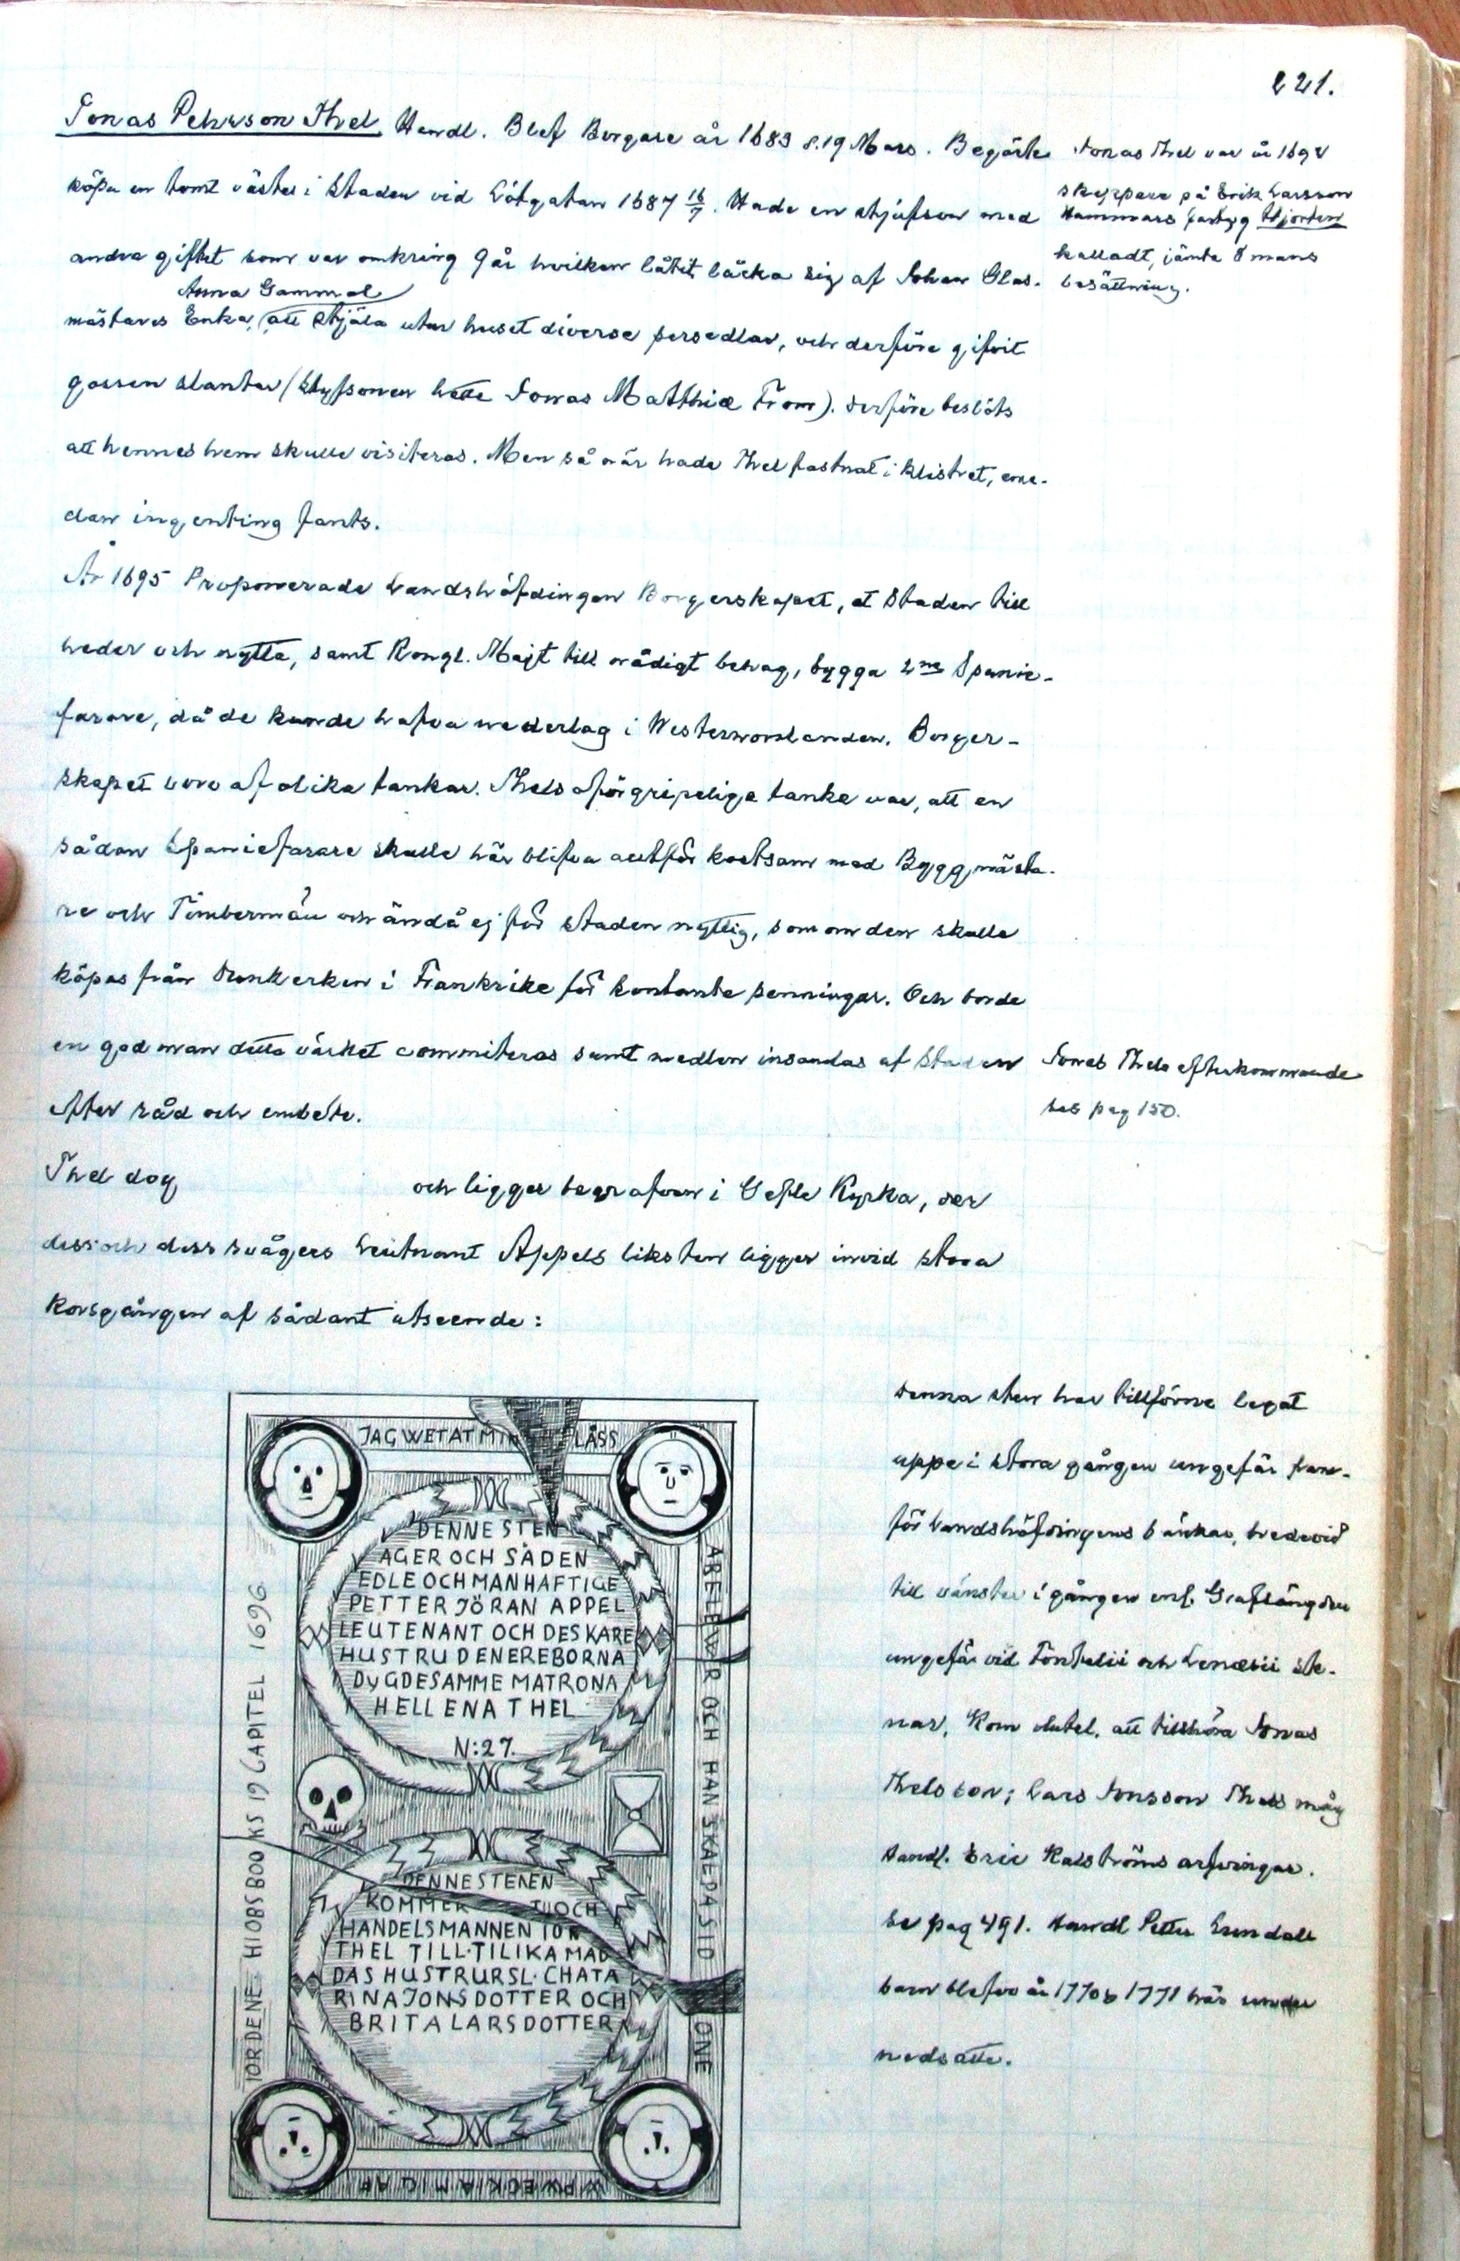 221.
Jonas Pehrson Thel Handl. Blef Borgare år 1683 d. 19 Mars. Begärte
köpa en tomt väster i Staden vid Lötgatan 1687 16/7. Hade en stjufson med
andra giftet som var omkring 9 år hvilken låtit läcka sig af Johan Glas-
Anna Gammal
mästares Enka, att stjäla utur huset diverse persedlar, och derföre gifvit
gossen slantar (Styfsonen hette Jonas Matthiæ From). Derföre beslöts
att hennes hem skulle visiteras. Men så när hade Thel fastnat i klistret, eme-
dan ingenting fants.
År 1695 Proponerade Landshöfdingen Borgerskapet, at Staden till
heder och nytta, samt Kongl. Majt till nådigt behag, bygga 2ne Spanie-
farare, då de kunde hafva nederlag i Westernorrlanden. Borger-
skapet voro af olika tankar. Thels oförgripelige tanke var, att en
sådan Spaniefarare skulle här blifva alltför kostsam med Byggmästa-
re och Timbermän och ändå ej för staden nyttig, som om den skulle
köpas från Dunkerken i Frankrike för kontante penningar. Och borde
en god man detta värket commiteras samt medlen insandas af Staden
efter råd och embete.
Thel dog och ligger begrafven i Gefle Kyrka, der
dess och dess svågers Leutnant Appels liksten ligger invid stora
Korsgången af sådant utseende:
Jonas Thel var år 1692
skeppare på Erik Larsson
Hammars fartyg Hjorten
kalladt, jämte 8 mans
besättning.
Jonas Thels efterkommande
ses pag 150.
JAG WETAT MIN LÅSS
ARE LEWR OCH HAN SKAL PÅ SID ONE
WPWECKIA MIG AF
IORDENE HIOBS BOOKS 19 CAPITEL 1696
DENNE STEN
ÄGER OCH SÅDEN
EDLE OCH MANHAFTIGE
PETTER JÖRAN APPEL
LEUTENANT OCH DES KÄRE
HUSTRU DENEREBORNA
DYGDESAMME MATRONA
HELLENA THEL
N:27.
DENNE STENEN
KOMMER TIL OCH
HANDELSMANNEN ION
THEL TILL TILIKA MÄD
DÄS HUSTRUR SL. CHATA
RINA JONSDOTTER OCH
BRITA LARSDOTTER
Denna sten har tillförne legat
uppe i stora gången ungefär fram-
för Landshöfdingens bänkar, bredevid
till vänster i gången enl. Graflängden
ungefär vid Fontelii och Lenæsii ste-
nar. Kom slutel. att tillhöra Jonas
Thels son; Lars Jonsson Thels måg
Handl. Eric Kalströms arfvingar.
Se pag 491. Handl Petter Lundals
barn blefvo år 1770 & 1771 här under
nedsatte.